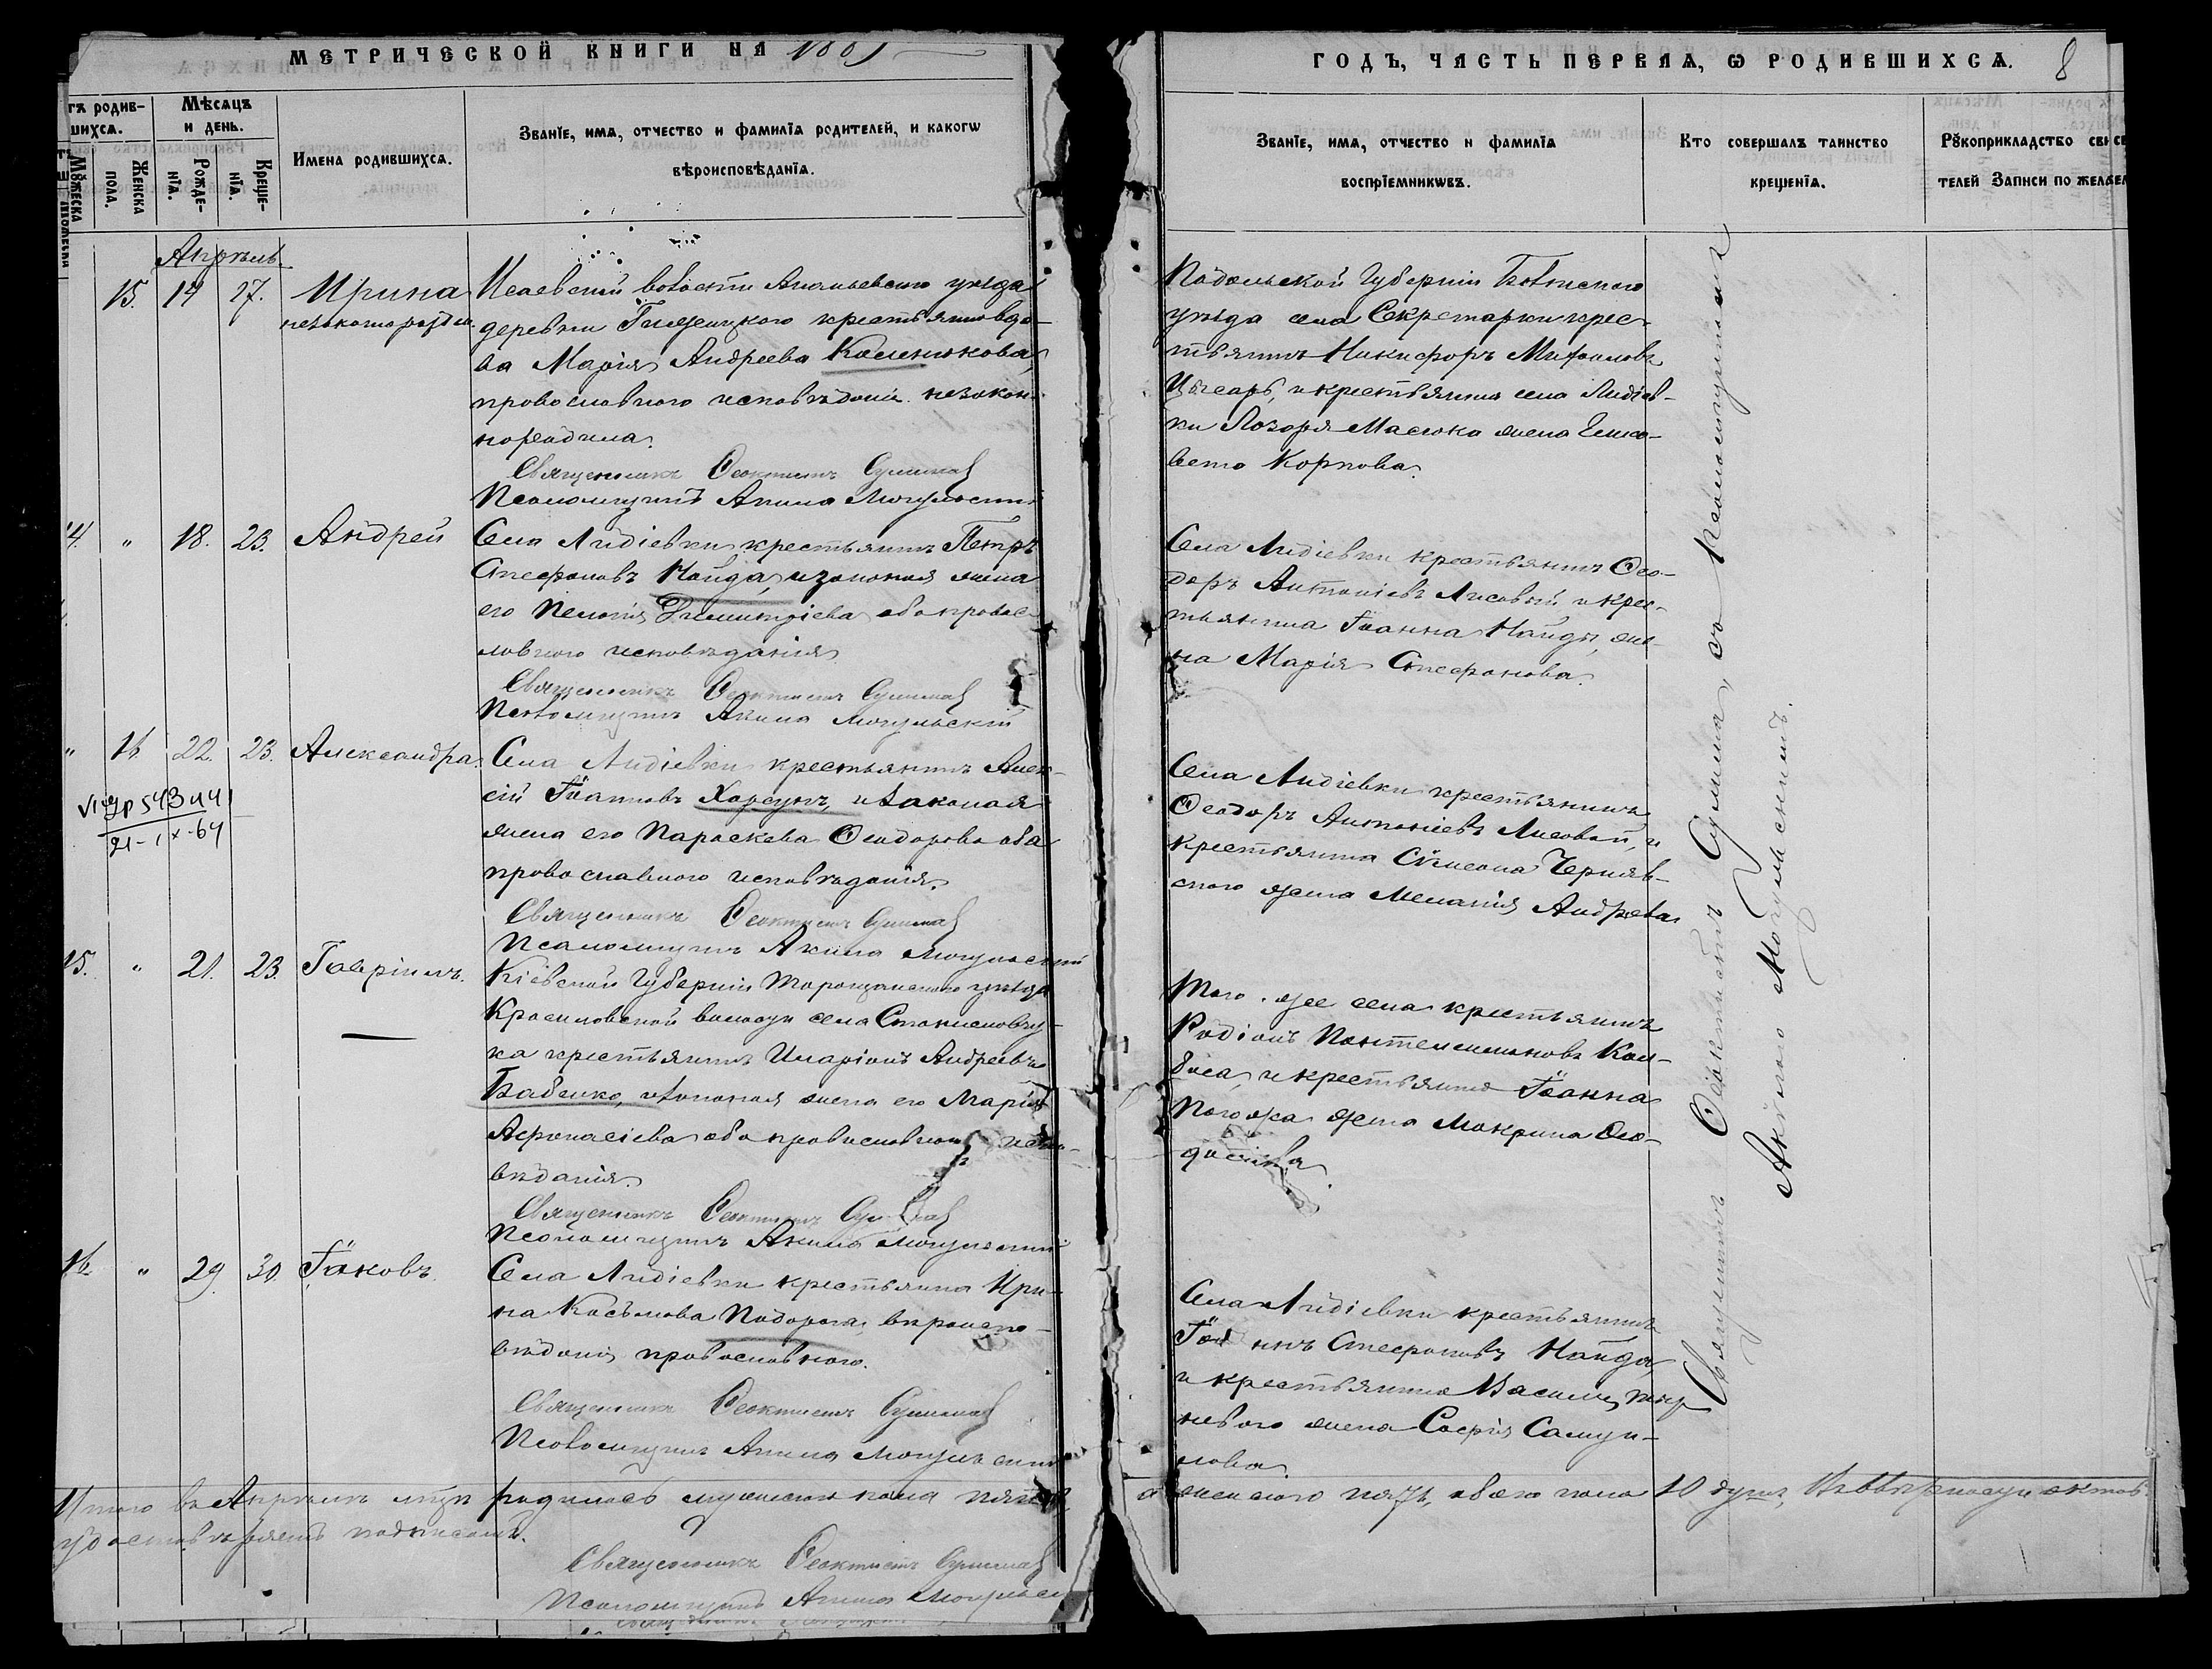 МЕТРИЧЕСКОЙ КНИГИ НА 1889
ГОДЪ, ЧАСТЬ ПЕРВАЯ, Ѡ РОДИВШИХСЯ.
8
родив-
шихся.
Мѣсяцъ
и день.
Мꙋжеска
Женска
пола.
Рожде-
нїя.
Креще-
нїя.
Имена родившихся.
Званїе, имя, отчество и фамилїя родителей, и какогѡ
вѣроисповѣданїя.
Званїе, имя, отчество и фамилїя
воспрїемникѡвъ.
Кто совершалъ таинство
крещенїя.
Рꙋкоприкладство
телей записи по
Апрѣль.
15. 14 17. Ирина
незаконорожден.
Исаевской волости Ананьевского уѣзда
деревни крестьянка вдо-
ва Марія Андреева Каленикова,
православного исповѣданія незакон-
нородила.
Священникъ Ѳеоктистъ Сулима
Псаломщикъ Акила Могульскій
Подольской Губерніи Балтского
уѣзда села Секретарки крес-
тьянинъ Никифоръ Михаиловъ
Цѣсарь, и крестьянина села Лидіев-
ки Лазаря Масюка жена Елиса-
вета Карпова.
14. " 18. 23. Андрей
Села Лидіевки крестьянинъ Петръ
Стефановъ Найда, и законная жена
его Пелагія Димитріева оба правос-
лавного исповѣданія
Священникъ Ѳеоктистъ Сулима
Псаломщикъ Акила Могульскій
Села Лидіевки крестьянинъ Ѳео-
доръ Антоніевъ Лисовый и крес-
тьянина Іоанна Найды же-
на Марія Стефанова.
" 16 22. 23. Александра.
Села Лидіевки крестьянинъ Алек-
сій Іоанновъ Харсунъ, и законая
жена его Параскева Ѳеодорова оба
православного исповѣданія.
Священникъ Ѳеоктистъ Сулима
Псаломщикъ Акила Могульскій
Села Лидіевки крестьянинъ
Ѳеодоръ Антоніевъ Лисовой, и
крестьянина Сѵмеона Черняв-
ского жена Меланія Андреева
21-IX-64
15. " 21. 23. Гавріилъ.
Кіевской Губерніи Таращанского уѣзда
Красиловской волости села Станиславчи-
ка крестьянинъ Иларіонъ Андреевъ
Бабенко, и законая жена его Марія
Афанасіева оба православного испо-
вѣданія.
Священникъ Ѳеоктистъ Сулима
Псаломщикъ Акила Могульскій
Того же села крестьянинъ
Родіонъ Пантелеимоновъ Кол-
баса, и крестьянина Іоанна
жена Макрина Ѳео-
досіева.
16. " 29. 30. Іаковъ.
Села Лидіевки крестьянка Ири-
на Косьмова Подорога, вѣроиспо-
вѣданія православного.
Священникъ Ѳеоктистъ Сулима
Псаломщикъ Акила Могульскій
Села Лидіевки крестьянинъ
Іоаннъ Стефановъ Найда,
и крестьянина Василия
жена Софія Самуи-
лова
Священникъ Ѳеоктистъ Сулима, со псаломщикомъ
Акилою Могульскимъ.
Итого въ Апрѣлѣ м̃цѣ родилось мужеска пола пять
а женского пять, обоего пола 10 душъ, Въ вѣрности актовъ
удостовѣряемъ подписомъ.
Священникъ Ѳеоктистъ Сулима
Псаломщикъ Акила